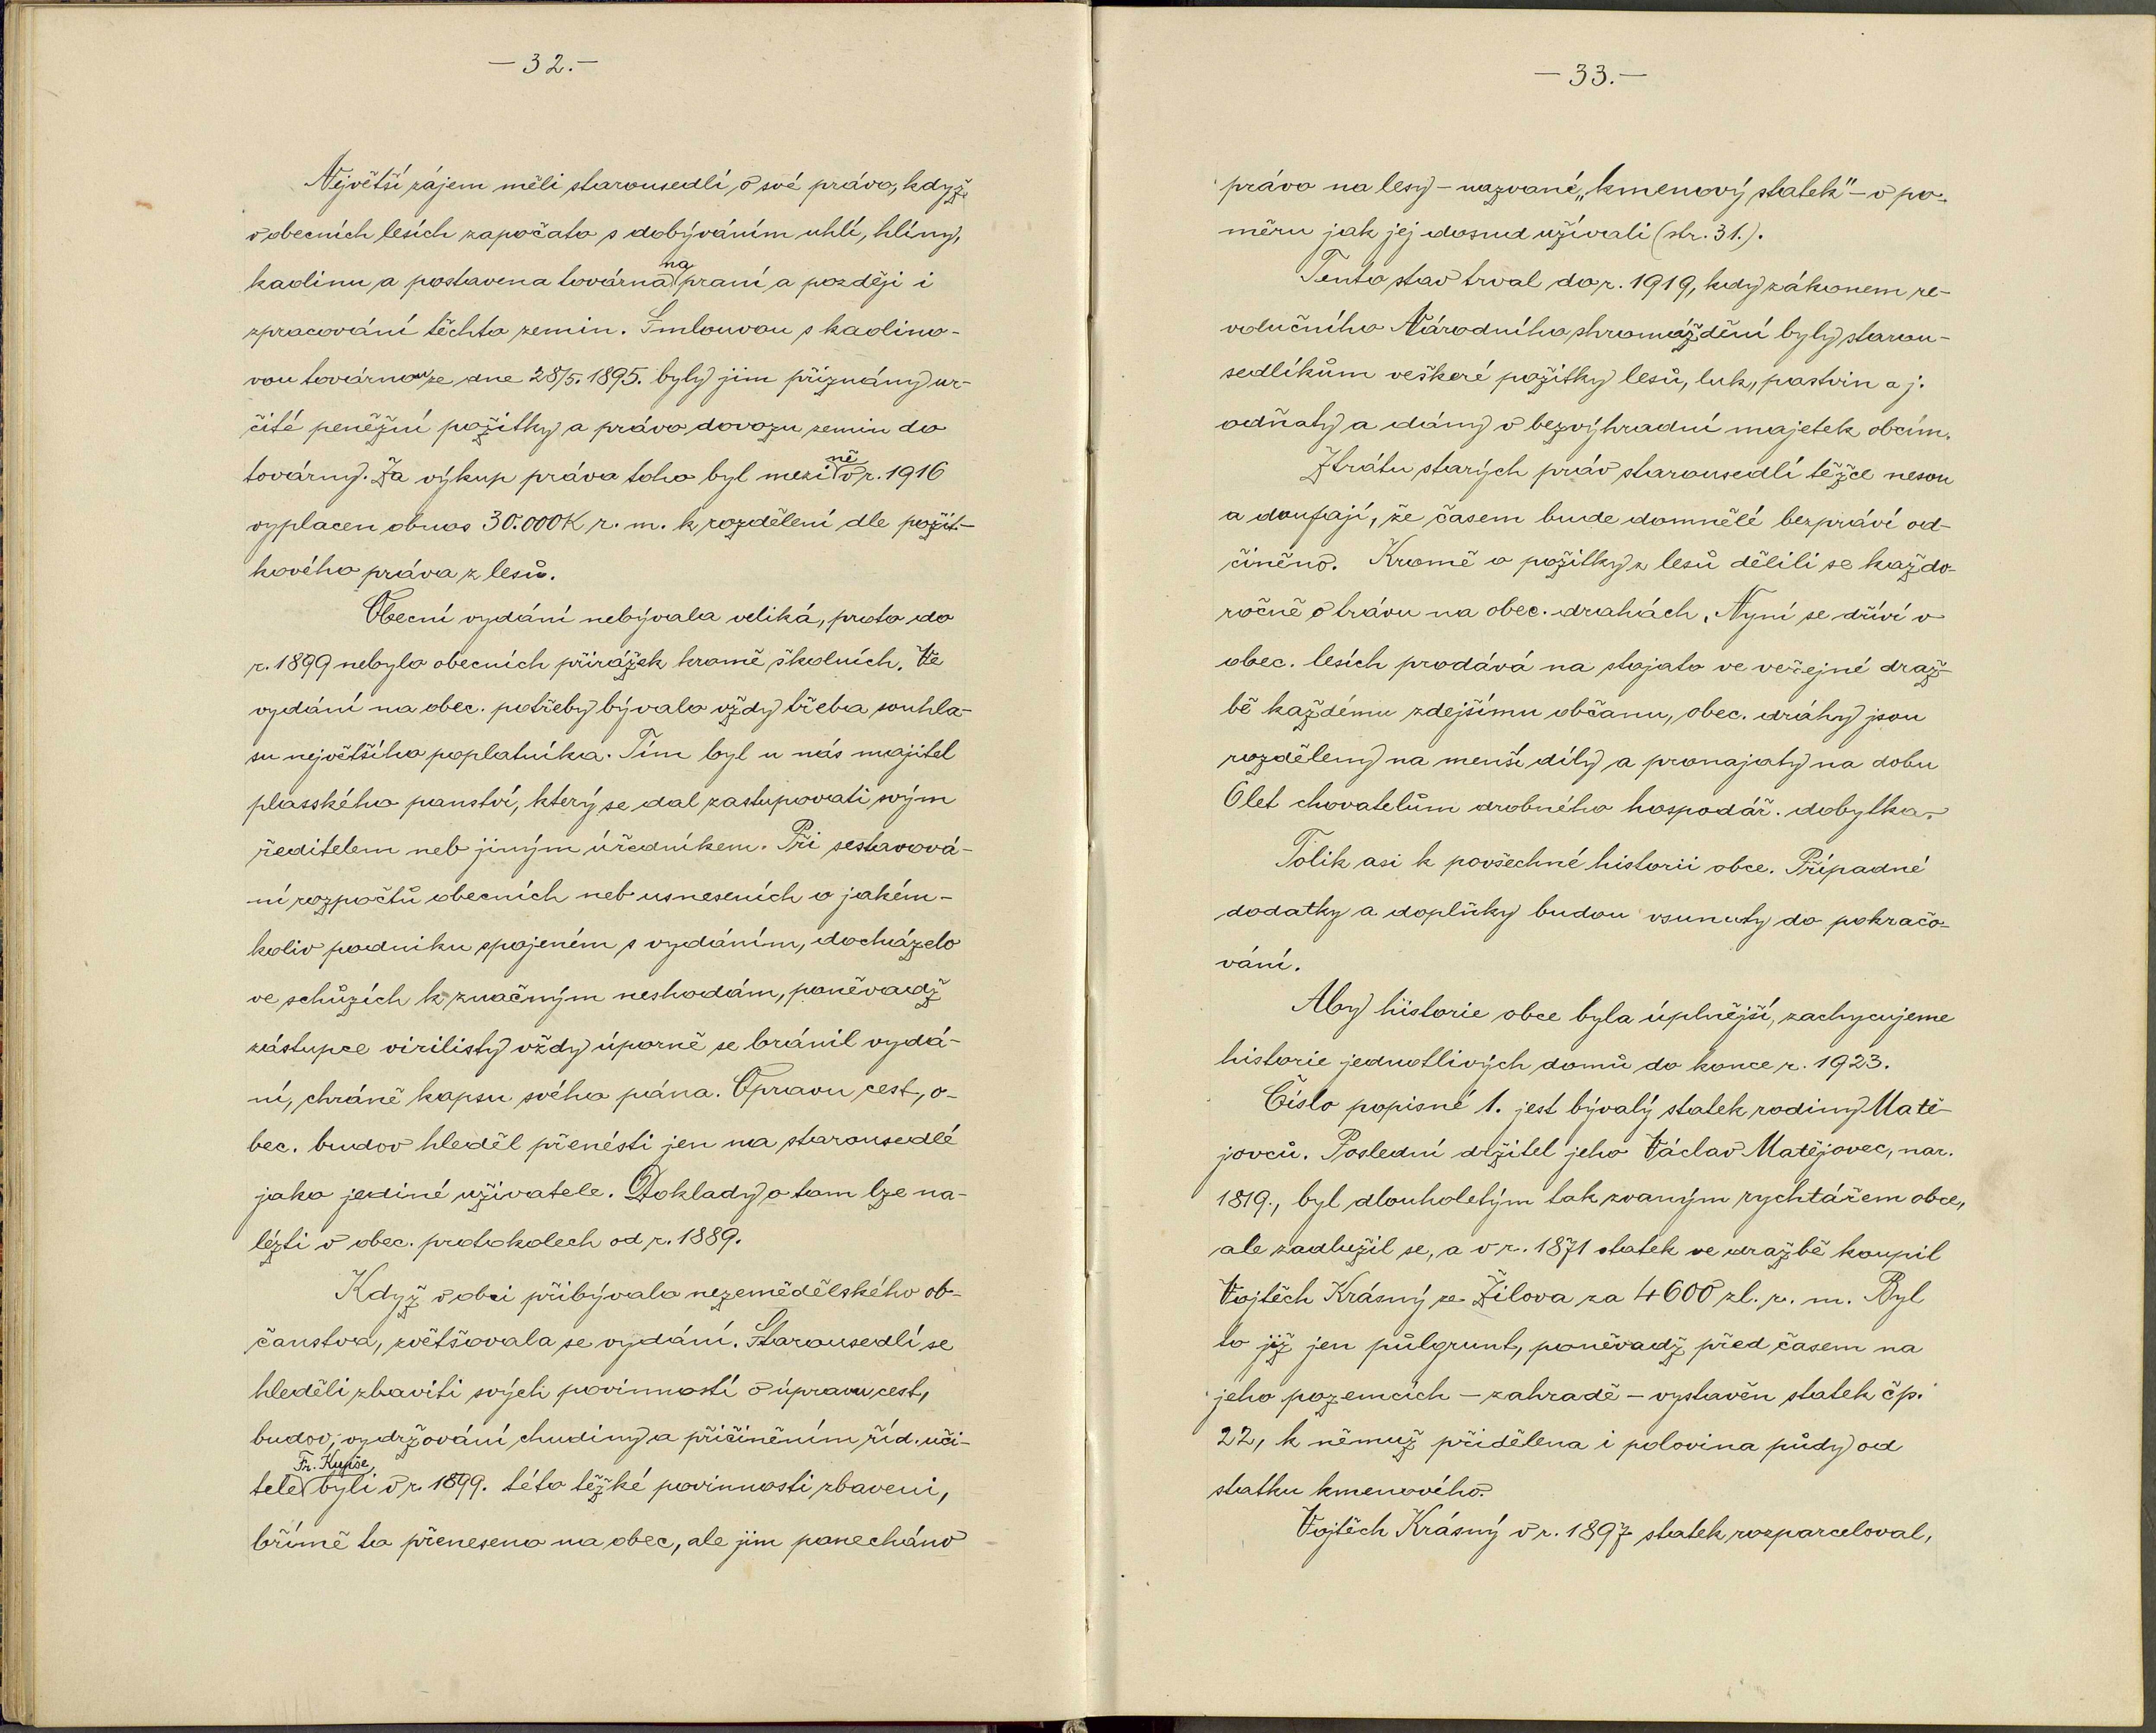 — 32. —
Největší zájem měli starousedlí o své právo, když
v obecních lesích započato s dobýváním uhlí, hlíny,
na
kaolinu a postavena továrna praní a později i
zpracování těchto zemin. Smlouvou s kaolino-
vou továrnou ze dne 28/5. 1895. byly jim přiznány ur-
čité peněžní požitky a právo dovozu zemin do
ně
továrny. Za výkup práva toho byl mezi v r. 1916
vyplacen obnos 30.000 K r. m. k rozdělení dle požit-
kového práva z lesů.
Obecní vydání nebývala veliká, proto do
r. 1899 nebylo obecních přirážek kromě školních. Ve
vydání na obec. potřeby bývalo vždy třeba souhla-
su největšího poplatníka. Tím byl u nás majitel
plasského panství, který se dal zastupovati svým
ředitelem neb jiným úředníkem. Při sestavová-
ní rozpočtů obecních neb usneseních o jakém-
koliv podniku spojeném s vydáním, docházelo
ve schůzích k značným neshodám, poněvadž
zástupce virilisty vždy úporně se bránil vydá-
ní, chráně kapsu svého pána. Opravu cest, o-
bec. budov hleděl přenésti jen na starousedlé
jako jediné uživatele. Doklady o tom lze na-
lézti v obec. protokolech od r. 1889.
Když v obci přibývalo nezemědělského ob-
čanstva, zvětšovala se vydání. Starousedlí se
hleděli zbaviti svých povinností o úpravu cest,
budov, vydržování chudiny a přičiněním říd. uči-
Fr. Kupše,
tele byli v r. 1899. této těžké povinnosti zbaveni,
břímě to přeneseno na obec, ale jim ponecháno
— 33. —
právo na lesy – nazvané „kmenový statek" – v po-
měru jak jej dosud užívali (str. 31.).
Tento stav trval do r. 1919, kdy zákonem re-
volučního Národního shromáždění byly starou-
sedlíkům veškeré požitky lesů, luk, pastvin a j.
odňaty a dány v bezvýhradní majetek obcím.
Ztrátu starých práv starousedlí těžce nesou
a doufají, že časem bude domnělé bezpráví od-
činěno. Kromě o požitky z lesů dělili se každo-
ročně o trávu na obec. drahách. Nyní se dříví v
obec. lesích prodává na stojato ve veřejné draž-
bě každému zdejšímu občanu, obec. dráhy jsou
rozděleny na menší díly a pronajaty na dobu
6 let chovatelům drobného hospodář. dobytka.
Tolik asi k povšechné historii obce. Případné
dodatky a doplňky budou vsunuty do pokračo-
vání.
Aby historie obce byla úplnější, zachycujeme
historie jednotlivých domů do konce r. 1923.
Číslo popisné 1. jest bývalý statek rodiny Matě-
jovců. Poslední držitel jeho Václav Matějovec, nar.
1819., byl dlouholetým tak zvaným rychtářem obce,
ale zadlužil se, a v r. 1871 statek ve dražbě koupil
Vojtěch Krásný ze Žilova za 4600 zl. r. m. Byl
to již jen půlgrunt, poněvadž před časem na
jeho pozemcích – zahradě – vystavěn statek čp.
22, k němuž přidělena i polovina půdy od
statku kmenového.
Vojtěch Krásný v r. 1897 statek rozparceloval,